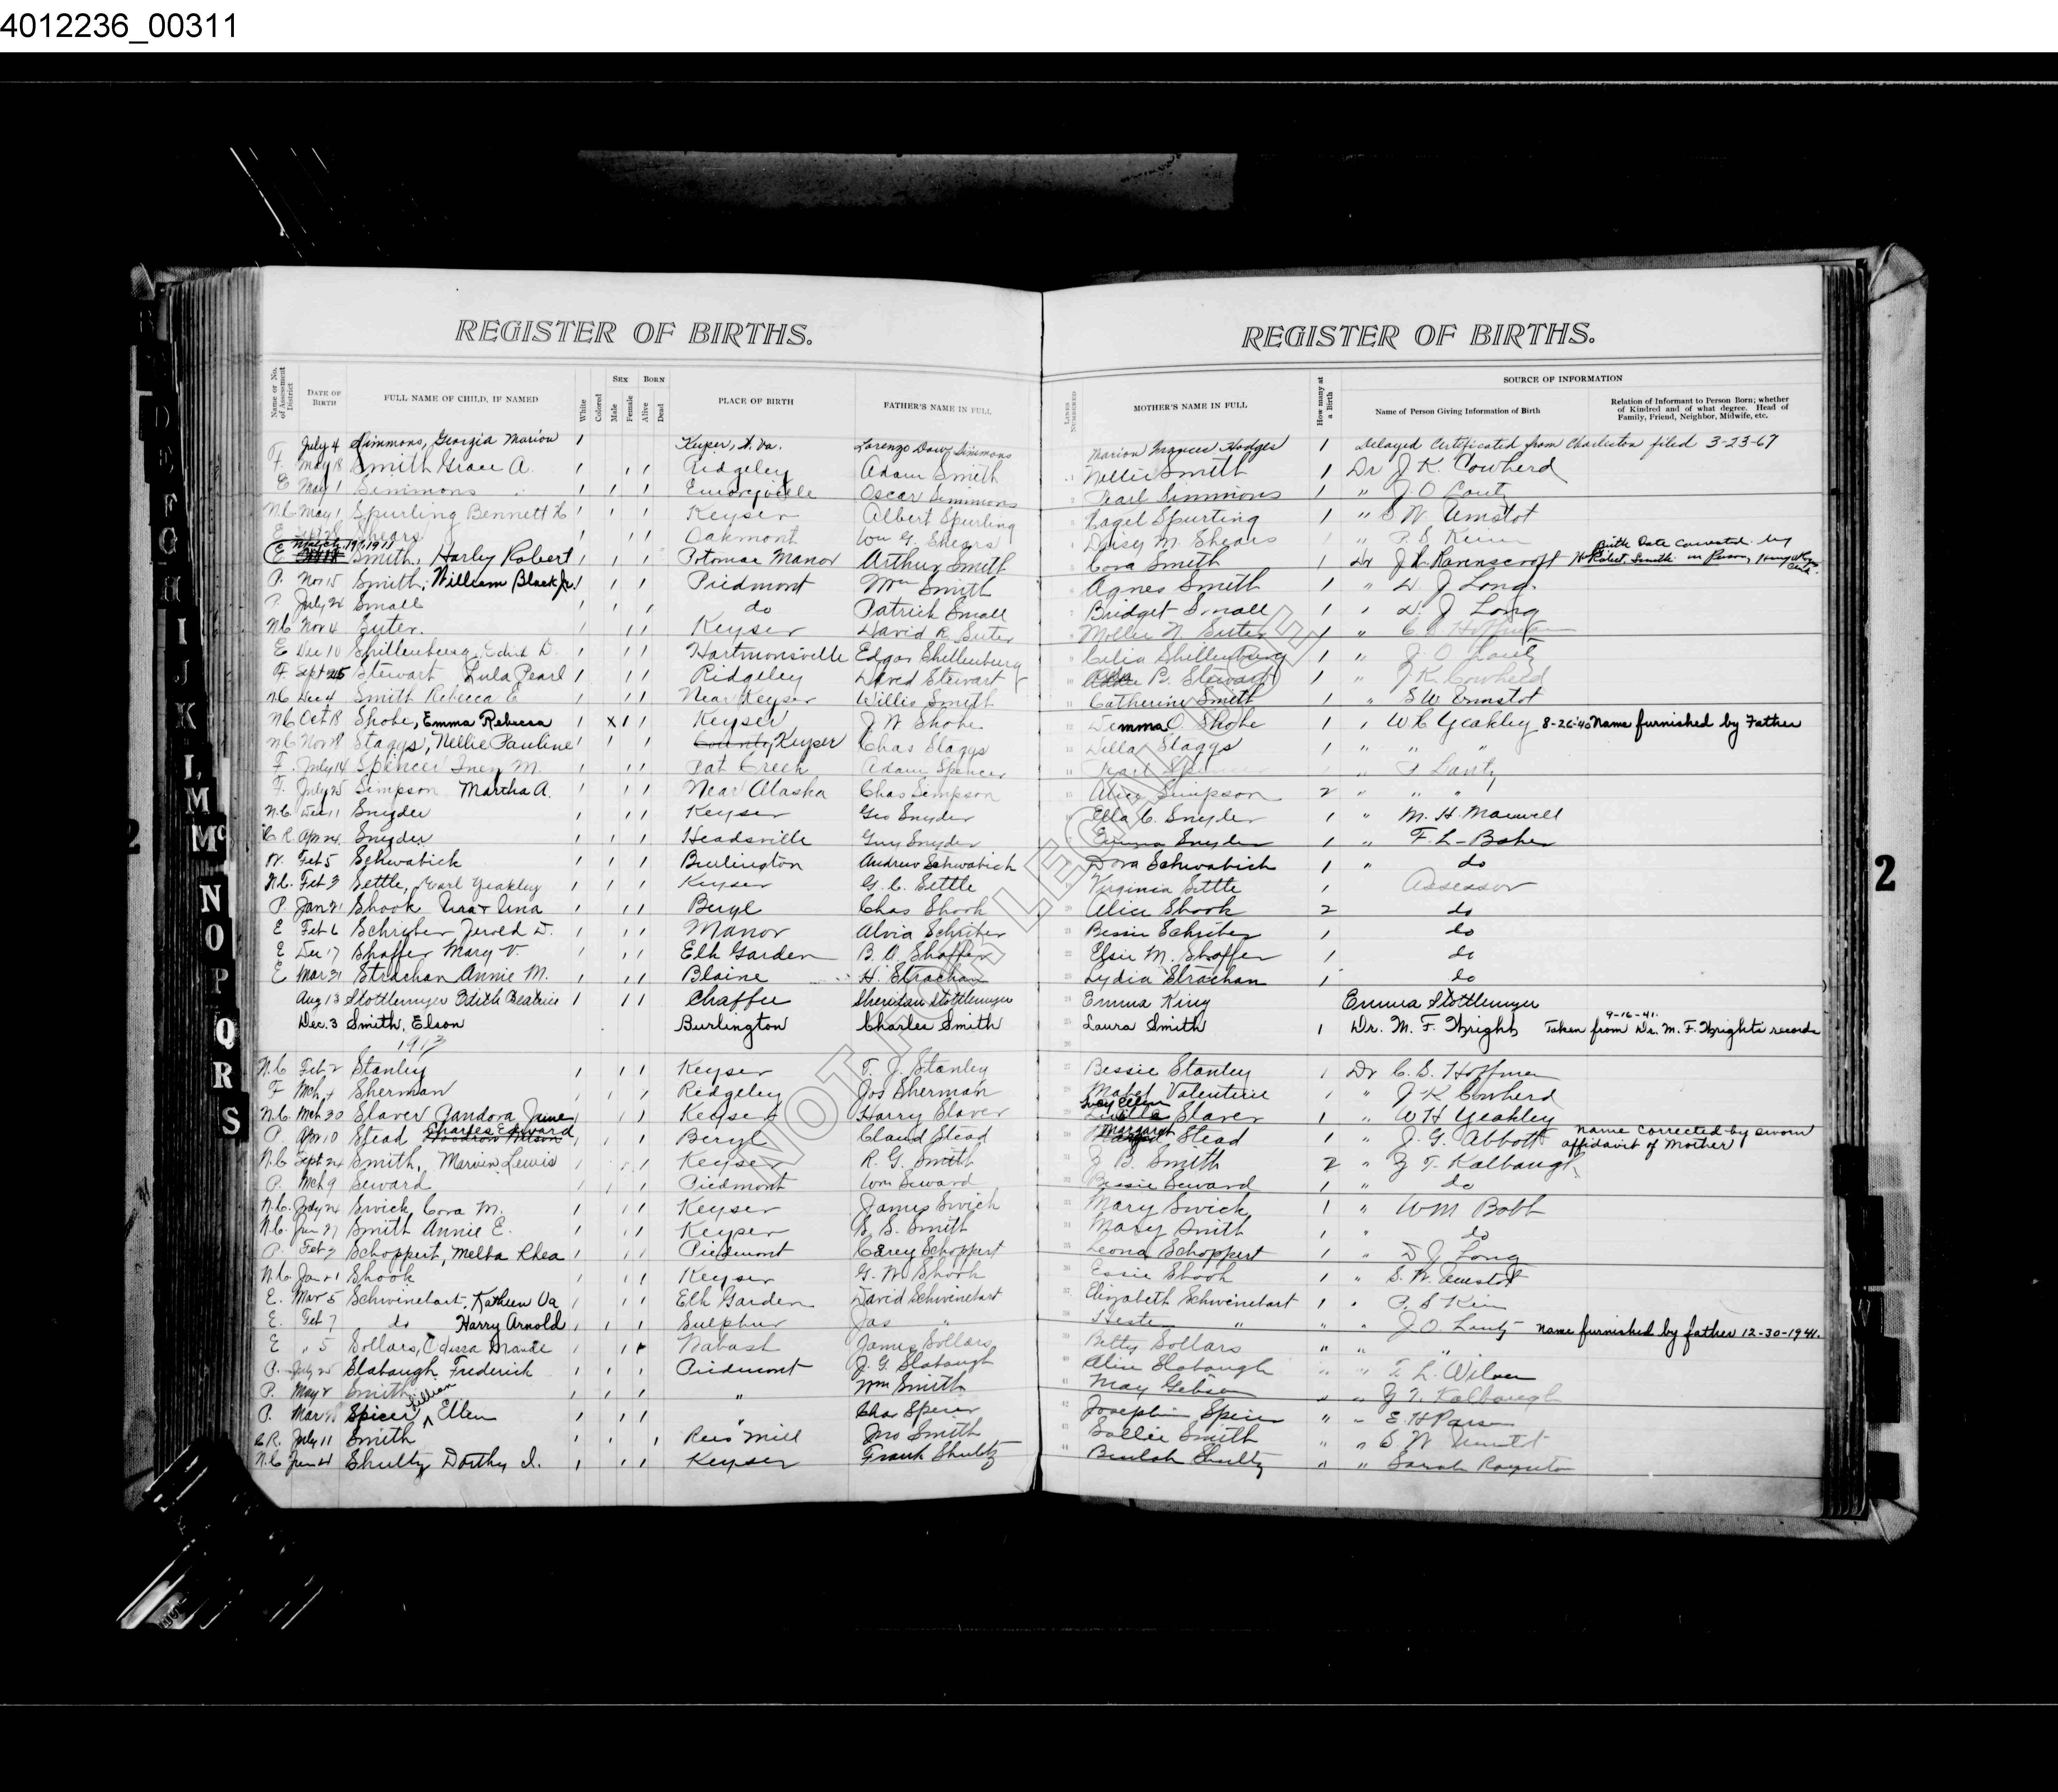 4012236_00311
REGISTER OF BIRTHS. REGISTER OF BIRTHS.
Name or No. of Assessment District DATE OF BIRTH FULL NAME OF CHILD, IF NAMED White Colored SEX Male Female BORN Alive Dead PLACE OF BIRTH FATHER'S NAME IN FULL LINES NUMBERED MOTHER'S NAME IN FULL How many at a Birth SOURCE OF INFORMATION Name of Person Giving Information of Birth Relation of Informant to Person Born; whether of Kindred and of what degree. Head of Family, Friend, Neighbor, Midwife, etc.
July 4 Simmons, Georgia Marion 1 Keyser, W. Va. Lorenzo Dow Simmons Marion Hodges 1 Delayed Certificated from Charleston filed 3-23-67
F. May 18 Smith Grace A. 1 1 1 Ridgeley Adam Smith Nellie Smith 1 Dr J. K. Cowherd
E May 1 Simmons 1 1 1 Emoryville Oscar Simmons Pearl Simmons 1 " J. O. Lantz
N.C. May 1 Spurling Bennett 1 1 1 Keyser Albert Spurling Spurling 1 " S W Ernstot
E Shears Oakmont Wm G. Shears Daisy M. Shears 1 " P. S. Keim
E March 19, 1911 Smith, Harley Robert 1 1 1 Potomac Manor Arthur Smith Cora Smith 1 Dr J. R. Ravenscroft Birth Date Corrected by Robert Smith in Person
P. Nov 15 Smith, William Black Jr. 1 1 1 Piedmont Wm Smith Agnes Smith 1 " D J Long
P. July 24 Small 1 1 1 do Patrick Small Bridget Small 1 " D. J Long
N.C. Nov 4 Suter. 1 1 1 Keyser David R. Suter Mollie N. Suter 1 " C S Hoffman
E Dec 10 D. 1 1 1 Hartmonsville Edgar Shellenburg Celia Shellenburg 1 " J. O Lantz
F. Sept 25 Stewart Lula Pearl 1 1 1 Ridgeley David Stewart P. Stewart 1 " J K. Cowherd
N.C. Dec 4 Smith Rebecca E 1 1 1 Near Keyser Willis Smith Catherine Smith 1 " S W Ernstot
N.C. Oct 18 Shobe, Emma Rebecca 1 x 1 1 Keyser J. W. Shobe Demma O Shobe 1 " W C Yeakley 8-26-40 Name furnished by Father
N.C. Nov 18 Staggs, Nellie Pauline 1 1 1 County Keyser Chas Staggs Della Staggs 1 " " "
F. July 14 Spencer Inez M. 1 1 1 Pat Creek Adam Spencer 1 " Lantz
F. July 25 Simpson Martha A. 1 1 1 Near Alaska Chas Simpson Alice Simpson 2 " " "
N.C. Dec 11 Snyder 1 1 1 Keyser Geo Snyder Ella C. Snyder 1 " M. H. Maxwell
C R. Apr 24 Snyder 1 1 1 Headsville Guy Snyder Emma Snyder 1 " F. L. Baker
W. Feb 5 Schwabick 1 1 1 Burlington Andrew Schwabick Dora Schwabich 1 " do
N.C. Feb 3 Settle, Earl Yeakley 1 1 1 Keyser G. C. Settle Virginia Settle 1 Assessor
P. Jan 21 Shook Una 1 1 1 Beryl Chas Shook Alice Shook 2 do
E Feb 6 Schriber Jerold D. 1 1 1 Manor Alvia Schriber Bessie Schriber 1 do
E Dec 17 Shaffer Mary V. 1 1 1 Elk Garden B. O. Shaffer Elsie M. Shaffer 1 do
E Mar 31 Strachan Annie M. 1 1 1 Blaine H. Strachan Lydia Strachan 1 do
Aug 13 Stottlemyer Edith Beatrice 1 1 1 Chaffee Sheridan Stottlemyer Emma King Emma Stottlemyer
Dec. 3 Smith, Elson Burlington Charles Smith Laura Smith 1 Dr. M. F. Wright 9-16-41. Taken from Dr. M. F. Wrights records
1913
N.C. Feb 2 Stanley 1 1 1 Keyser T. J. Stanley Bessie Stanley 1 Dr C. S. Hoffman
F Mch 4 Sherman 1 1 1 Ridgeley Jos Sherman Mabel Valentine 1 " J K Cowherd
N.C. Mch 30 Slaver Pandora Jaine 1 1 1 Keyser Harry Slaver Lucy Ellen Slaver 1 " W H Yeakley
P. Apr 10 Stead Charles Edward Woodrow Wilson 1 1 1 Beryl Claud Stead Margaret Stead 1 " J. G. Abbott Name corrected by sworn affidavit of Mother
N.C. Sept 24 Smith, Marvin Lewis 1 1 1 Keyser R. G. Smith J B. Smith 2 " Z T. Kalbaugh
P. Mch 9 Seward 1 1 1 Piedmont Wm Seward Bessie Seward 1 " do
N.C. July 24 Swick, Cora M. 1 1 1 Keyser James Swick Mary Swick 1 " W M Babb
N.C. Jun 27 Smith Annie E. 1 1 1 Keyser S. Smith Mary Smith 1 " do
P. Feb 2 Schoppert, Melba Rhea 1 1 1 Piedmont Carey Schoppert Leona Schoppert 1 " D J Long
N.C. Jan 21 Shook 1 1 1 Keyser G. W Shook Essie Shook 1 " S. W. Ernstot
E. Mar 5 Schwinebart, Kathleen Va 1 1 1 Elk Garden David Schwinebart Elizabeth Schwinebart 1 " P. S Keim
E. Feb 7 do Harry Arnold 1 1 1 Sulphur Jas " Hester " " " J O Lantz Name furnished by father 12-30-1941.
E " 5 Sollars, Odessa 1 1 1 Wabash James Sollars Betty Sollars " " " "
P. July 25 Slabaugh Frederick 1 1 1 Piedmont J. G. Slabaugh Alice Slabaugh " " T. L. Wilson
P. May 8 Smith 1 1 1 " Wm Smith May Gibson " " Z T. Kalbaugh
P. Mar Spicer Lillian Ellen 1 1 1 " Chas Spicer Josephine Spicer " " E. H Parsons
C.R. July 11 Smith 1 1 1 Rees Mill Jno Smith Sallie Smith " " S W Ernstot
N.C. Jun 21 Shultz Dorthy I. 1 1 1 Keyser Frank Shultz Beulah Shultz " " Sarah Royston
NOT FOR LEGAL USE
2 2
D E F G H I J K L M Mc N O P Q R S